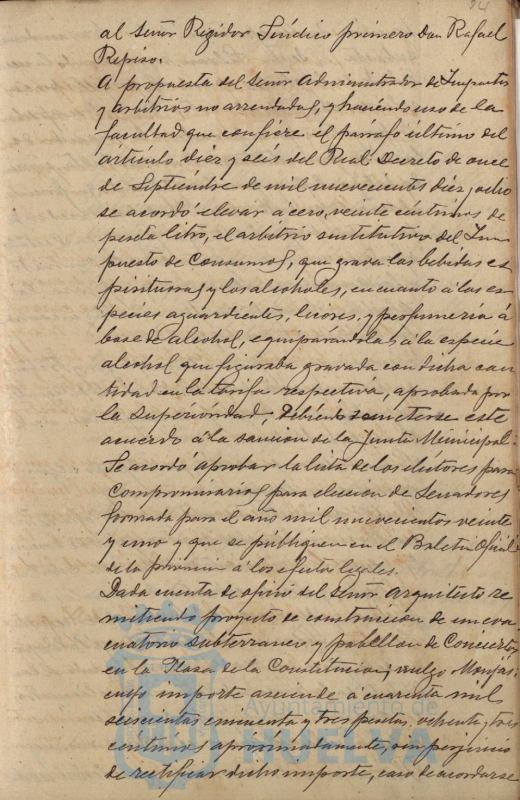 94
al Señor Regidor Síndico primero Don Rafael
Repiso.
A propuesta del Señor Administrador de Impuestos
y arbitrios no arrendados, y haciendo uso de la
facultad que confiere el párrafo último del
artículo diez y seis del Real Decreto de once
de Septiembre de mil nuevecientos diez y ocho
se acordó elevar á cero, veinte céntimos de
peseta litro, el arbitrio sustitutivo del Im-
puesto de Consumos, que grava las bebidas es-
pirituosas y los alcoholes, en cuanto á las es-
pecies aguardientes, licores, y perfumería á
base de alcohol, equiparándolas á la especie
alcohol que figuraba gravada con dicha can-
tidad en la tarifa respectiva, aprobada por
la Superioridad; debiendo someterse este
acuerdo á la sanción de la Junta Municipal.
Se acordó aprobar la lista de los electores para
Compromisarios para elección de Senadores
formada para el año mil nuevecientos veinte
y uno y que se publique en el Boletín Oficial
de la provincia á los efectos legales.
Dada cuenta de oficio del Señor Arquitecto re-
mitiendo proyecto de construcción de un eva-
cuatorio subterraneo y pabellon de Conciertos
en la Plaza de la Constitución, vulgo Monjas
cuyo importe asciende á cuarenta mil
seiscientas cincuenta y tres pesetas, ochenta y tres
céntimos aproximadamente, sin perjuicio
de rectificar dicho importe, caso de acordarse
Ayuntamiento de
HUELVA